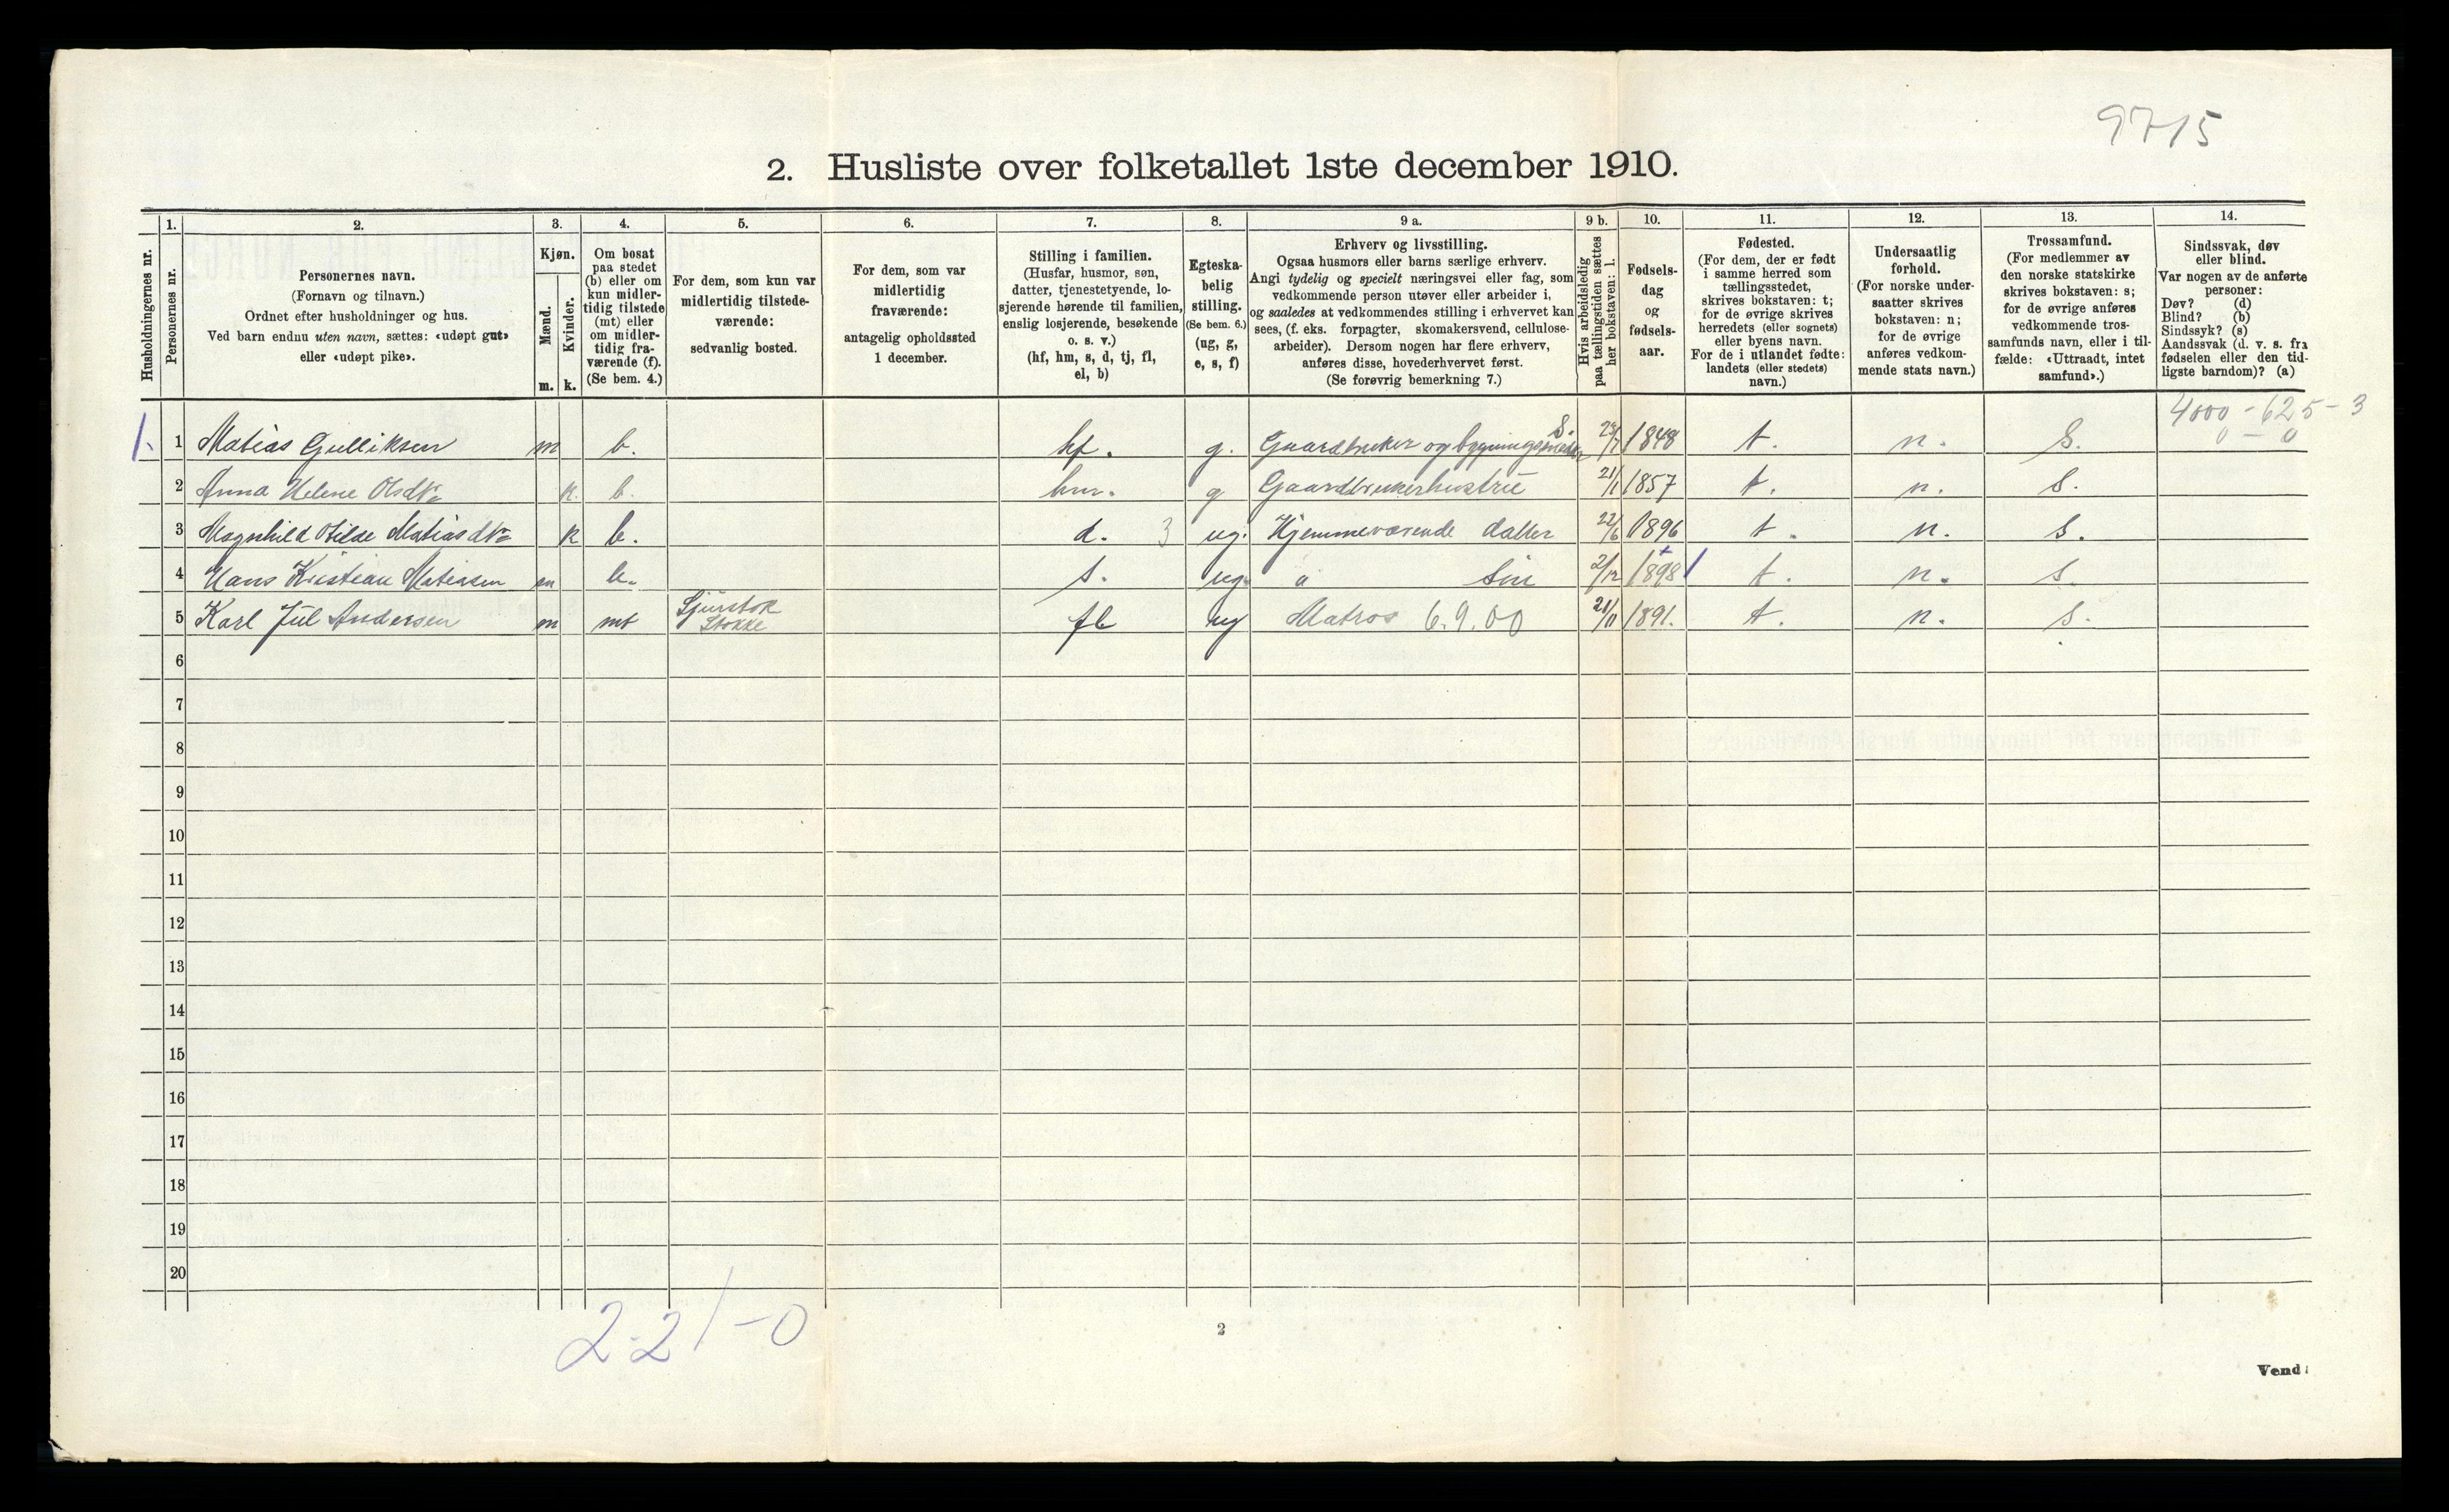 9715
2. Husliste over folketallet 1ste december 1910.
Husholdningernes nr.
1.
Personernes nr.
2.
Personernes navn.
(Fornavn og tilnavn.)
Ordnet efter husholdninger og hus.
Ved barn endnu uten navn, sættes: «udøpt gut»
eller «udøpt pike».
3.
Kjøn.
Mænd.
Kvinder.
m. k.
4.
Om bosat
paa stedet
(b) eller om
kun midler-
tidig tilstede
(mt) eller
om midler-
tidig fra-
værende (f).
(Se bem. 4.)
5.
For dem, som kun var
midlertidig tilstede-
værende:
sedvanlig bosted.
6.
For dem, som var
midlertidig
fraværende:
antagelig opholdssted
1 december.
7.
Stilling i familien.
(Husfar, husmor, søn,
datter, tjenestetyende, lo-
sjerende hørende til familien,
enslig losjerende, besøkende
o. s. v.)
(hf, hm, s, d, tj, fl,
el, b)
8.
Egteska-
belig
stilling.
(Se bem. 6.)
(ug, g,
e, s, f)
9 a.
Erhverv og livsstilling.
Ogsaa husmors eller barns særlige erhverv.
Angi tydelig og specielt næringsvei eller fag, som
vedkommende person utøver eller arbeider i,
og saaledes at vedkommendes stilling i erhvervet kan
sees, (f. eks. forpagter, skomakersvend, cellulose-
arbeider). Dersom nogen har flere erhverv,
anføres disse, hovederhvervet først.
(Se forøvrig bemerkning 7.)
9 b.
Hvis arbeidsledig
paa tællingstiden sættes
her bokstaven: l.
10.
Fødsels-
dag
og
fødsels-
aar.
11.
Fødested.
(For dem, der er født
i samme herred som
tællingsstedet,
skrives bokstaven: t;
for de øvrige skrives
herredets (eller sognets)
eller byens navn.
For de i utlandet fødte:
landets (eller stedets)
navn.)
12.
Undersaatlig
forhold.
(For norske under-
saatter skrives
bokstaven: n;
for de øvrige
anføres vedkom-
mende stats navn.)
13.
Trossamfund.
(For medlemmer av
den norske statskirke
skrives bokstaven: s;
for de øvrige anføres
vedkommende tros-
samfunds navn, eller i til-
fælde: «Uttraadt, intet
samfund».)
14.
Sindssvak, døv
eller blind.
Var nogen av de anførte
personer:
Døv? (d)
Blind? (b)
Sindssyk? (s)
Aandssvak (d. v. s. fra
fødselen eller den tid-
ligste barndom)? (a)
4000 - 625 - 3
0 - 0
1. 1 Matias Gulliksen m b. hf. g. Gaardbruker og S. 1848 t. n. S.
2 Anna Helene k b. hm. g Gaardbrukerhustrie 21/1 1857 t. n. S.
3 Magnhild Otilde k b. d. 3 ug. Hjemmeværende datter 22/6 1896 t. n. S.
4 Hans Kristian Matiasen m b. s. ug. Sön 2/12 1898 t. n. S.
5 Karl Jul Andersen m mt Stokke fl ug Matros 6.9.00 21/11 1891. t. n. S.
6
7
8
9
10
11
12
13
14
15
16
17
18
19
20
2-2 1-0
2
Vend!